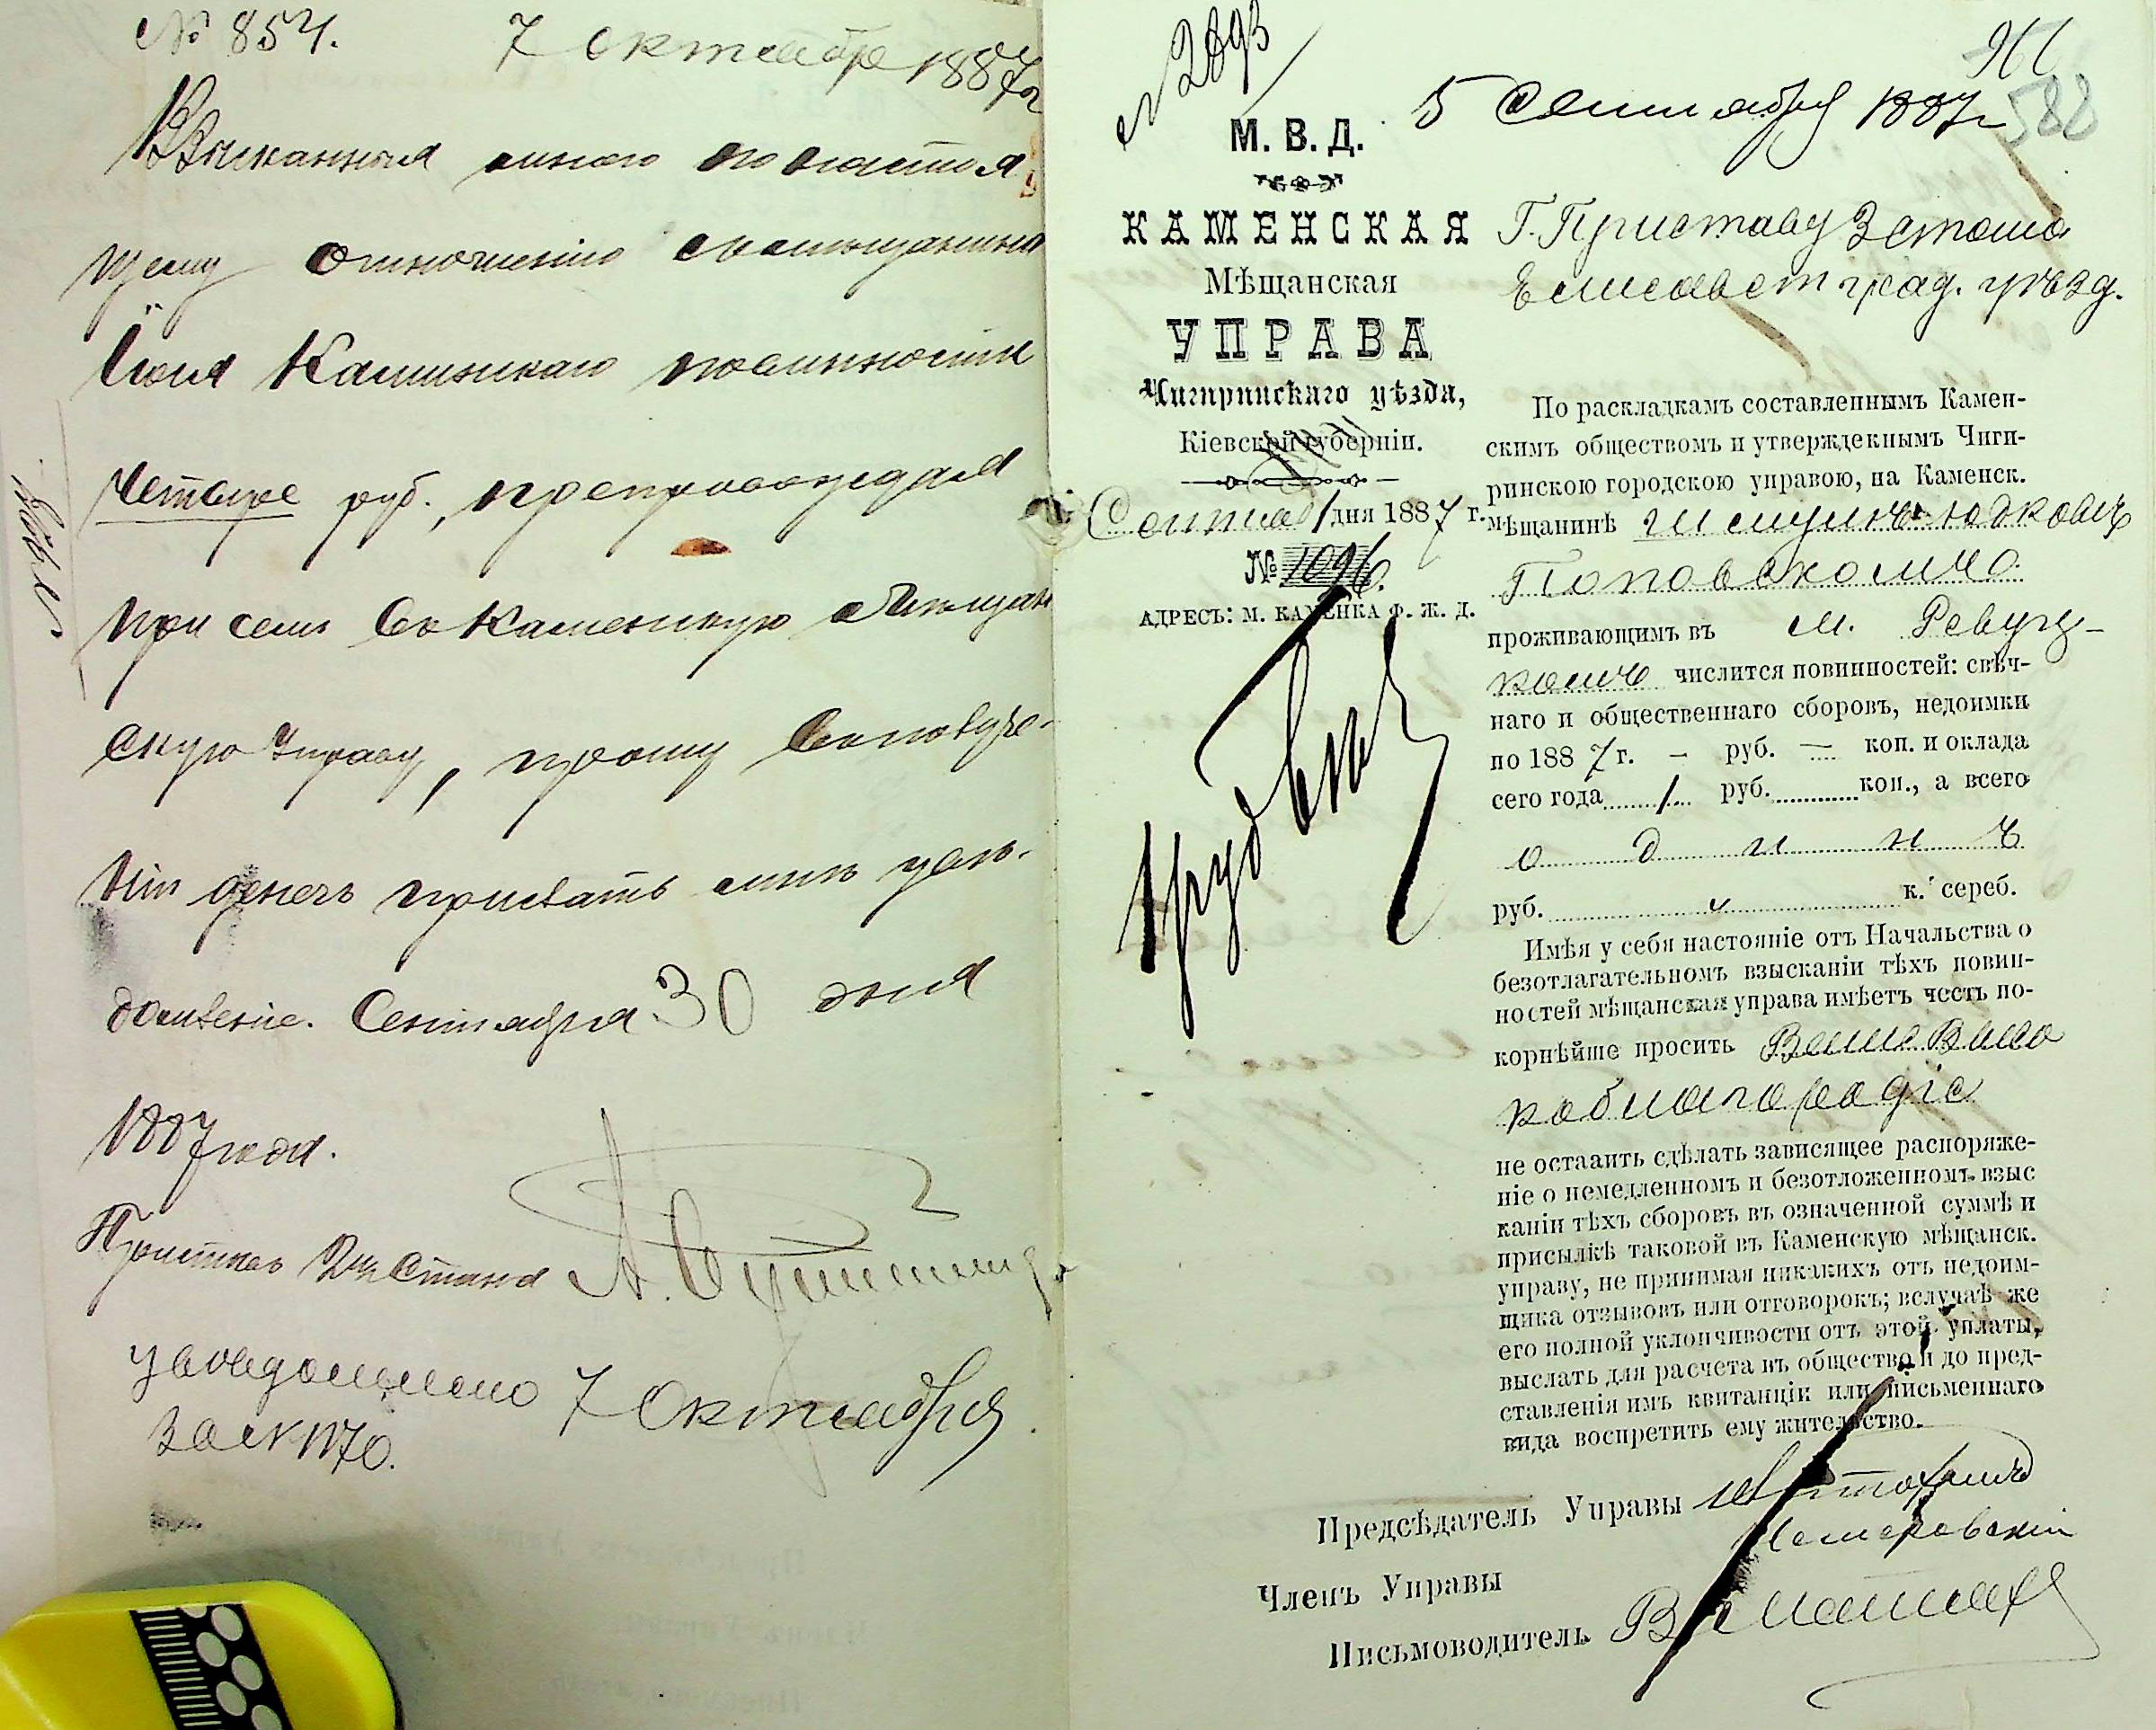 № 854.
7 Октября 1887 г
Взысканныя по настоя
щему отношенію съ мѣщанина
Каменскаго повинности
четыре руб., препровождая
при семъ въ Каменскую Мѣщан
скую Управу, прошу о получе-
ніи денегъ прислать мнѣ увѣ-
домленіе. Сентября 30 дня
1887 года.
Приставъ Стана
уведомлено 7 Октября
за № 1170.
М. В. Д.
КАМЕНСКАЯ
Мѣщанская
УПРАВА
Чигиринскаго уѣзда,
Кіевской губерніи.
Сентяб 1 дня 1887 г.
№ 1096.
АДРЕСЪ: М. КАМЕНКА Ф. Ж. Д.
5 Сентября 1887 г
588
Г. Приставу 3 стана
Елисаветград. уѣзд.
По раскладкамъ составленнымъ Камен-
скимъ обществомъ и утвержденнымъ Чиги-
ринскою городскою управою, на Каменск.
мѣщанинѣ Шмулѣ Юдковѣ
Поповскомъ
проживающимъ въ м. Ревуц-
комъ числится повинностей: свѣч-
наго и общественнаго сборовъ, недоимки
по 1887 г. – руб. — коп. и оклада
сего года 1 руб. коп., а всего
одинъ
руб. к. сереб.
Имѣя у себя настояніе отъ Начальства о
безотлагательномъ взысканіи тѣхъ повин-
ностей мѣщанская управа имѣетъ честь по-
корнѣйше просить Ваше Высо
коблагородіе
не остаавить сдѣлать зависящее распоряже-
ніе о немедленномъ и безотложенномъ взыс
каніи тѣхъ сборовъ въ означенной суммѣ и
присылкѣ таковой въ Каменскую мѣщанск.
управу, не принимая никакихъ отъ недоим-
щика отзывовъ или отговорокъ; вслучаѣ же
его полной уклончивости отъ этой уплаты,
выслать для расчета въ общество и до пред-
ставленія имъ квитанціи или письменнаго
вида воспретить ему жительство.
Предсѣдатель Управы
Членъ Управы
Письмоводитель